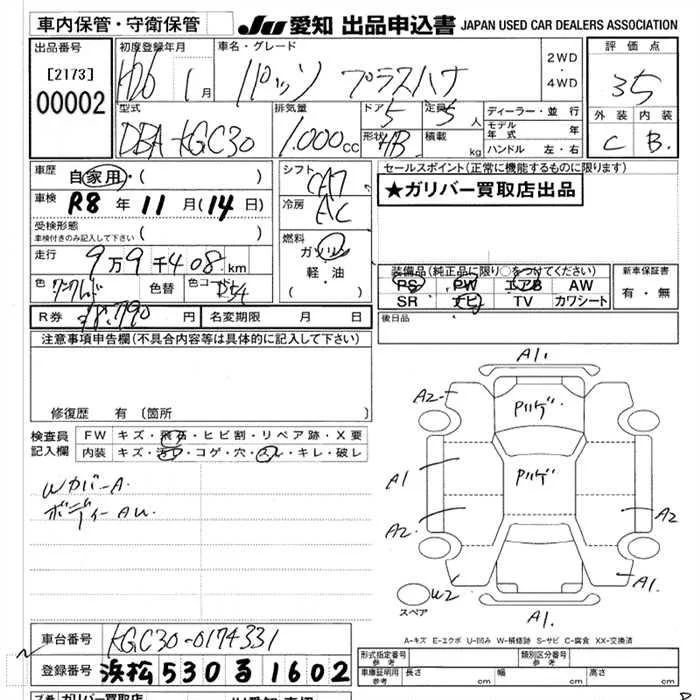 車内保管・守衛保管
JU 愛知 出品申込書 JAPAN USED CAR DEALERS ASSOCIATION
出品番号
[2173]
00002
初度登録年月
H26 1月
車名・グレード
パッソ プラスハナ
2WD
・
4WD
評価点
3.5
外装 内装
C B.
型式
DBA-KGC30
排気量
1.000cc
ドア
5
形状
HB
定員
5人
積載
kg
ディーラー・並行
モデル年式 年
ハンドル 左・右
車歴
自家用・( )
車検
R8年11月(14日)
受検形態
車検付きのみ記入して下さい ( )
走行
9万9千408km
色
色替
色コード
R54
シフト
CA7
冷房
AC
燃料
ガソリン
軽・油
( )
セールスポイント(正常に機能するものに限ります)
★ガリバー買取店出品
装備品(純正品に限り○をつけてください)
PS PW エアB AW
SR ナビ TV カワシート
新車保証書
有・無
R券
円
名変期限 月 日
後日品
注意事項申告欄(不具合内容等は具体的に記入して下さい)
修復歴 有 (箇所 )
検査員
記入欄
FW キズ・飛石・ヒビ割・リペア跡・X要
内装 キズ・汚レ・コゲ・穴・スレ・キレ・破レ
Wカバー A.
ボディー AW.
A1.
A2
Pハゲ.
Pハゲ.
A1
A2
A2
W2
A1.
A1.
スペア
A-キズ E-エクボ U-凹み W-補修跡 S-サビ C-腐食 XX-交換済
車台番号
KGC30-0174331
登録番号
浜松530る1602
形式指定番号
参考
類別区分番号
参考
車庫証明用
参考
長さ cm 幅 cm 高さ cm
ガリバー買取店